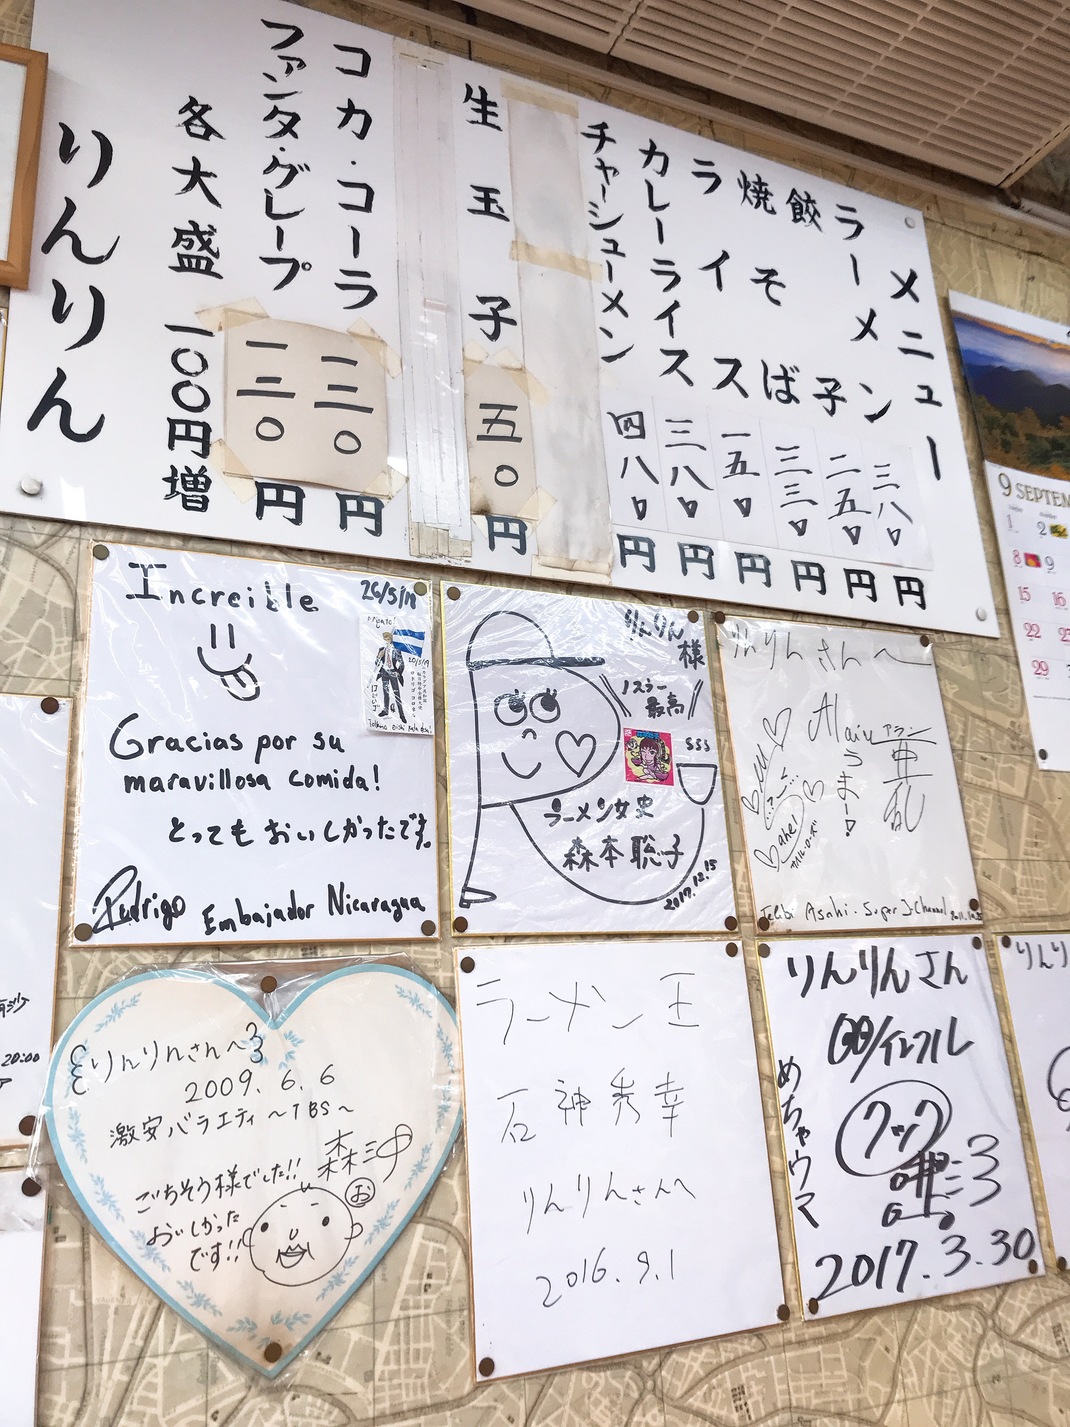 メニュー
ラーメン 三八〇円
餃子 二五〇円
焼そば 三三〇円
ライス 一五〇円
カレーライス 三八〇円
チャーシューメン 四八〇円
生玉子 五〇円
コカ・コーラ 一三〇円
ファンタ・グレープ 一三〇円
各大盛 一〇〇円増
りんりん
9 SEPTEM
1
2
8
9
15
16
22
23
29
Increible
26/5/19
20/5/19
Gracias por su
maravillosa comida!
とってもおいしかったです。
Rodrigo Embajador Nicaragua
りんりん様
ノスラー
最高
sss
ラーメン女史
森本聡子
2017.12.15
りんりんさんへ
Alain
アラン
うまー!
Telebi Asahi. Super J-Channel
りんりんさんへ
2009.6.6
激安バラエティ～TBS～
ごちそう様でした!!
おいしかった
です!!
森三中
お
ラーメン王
石神秀幸
りんりんさんへ
2016.9.1
りんりんさん
めちゃウマ
クック
2017.3.30
りんり
20:00